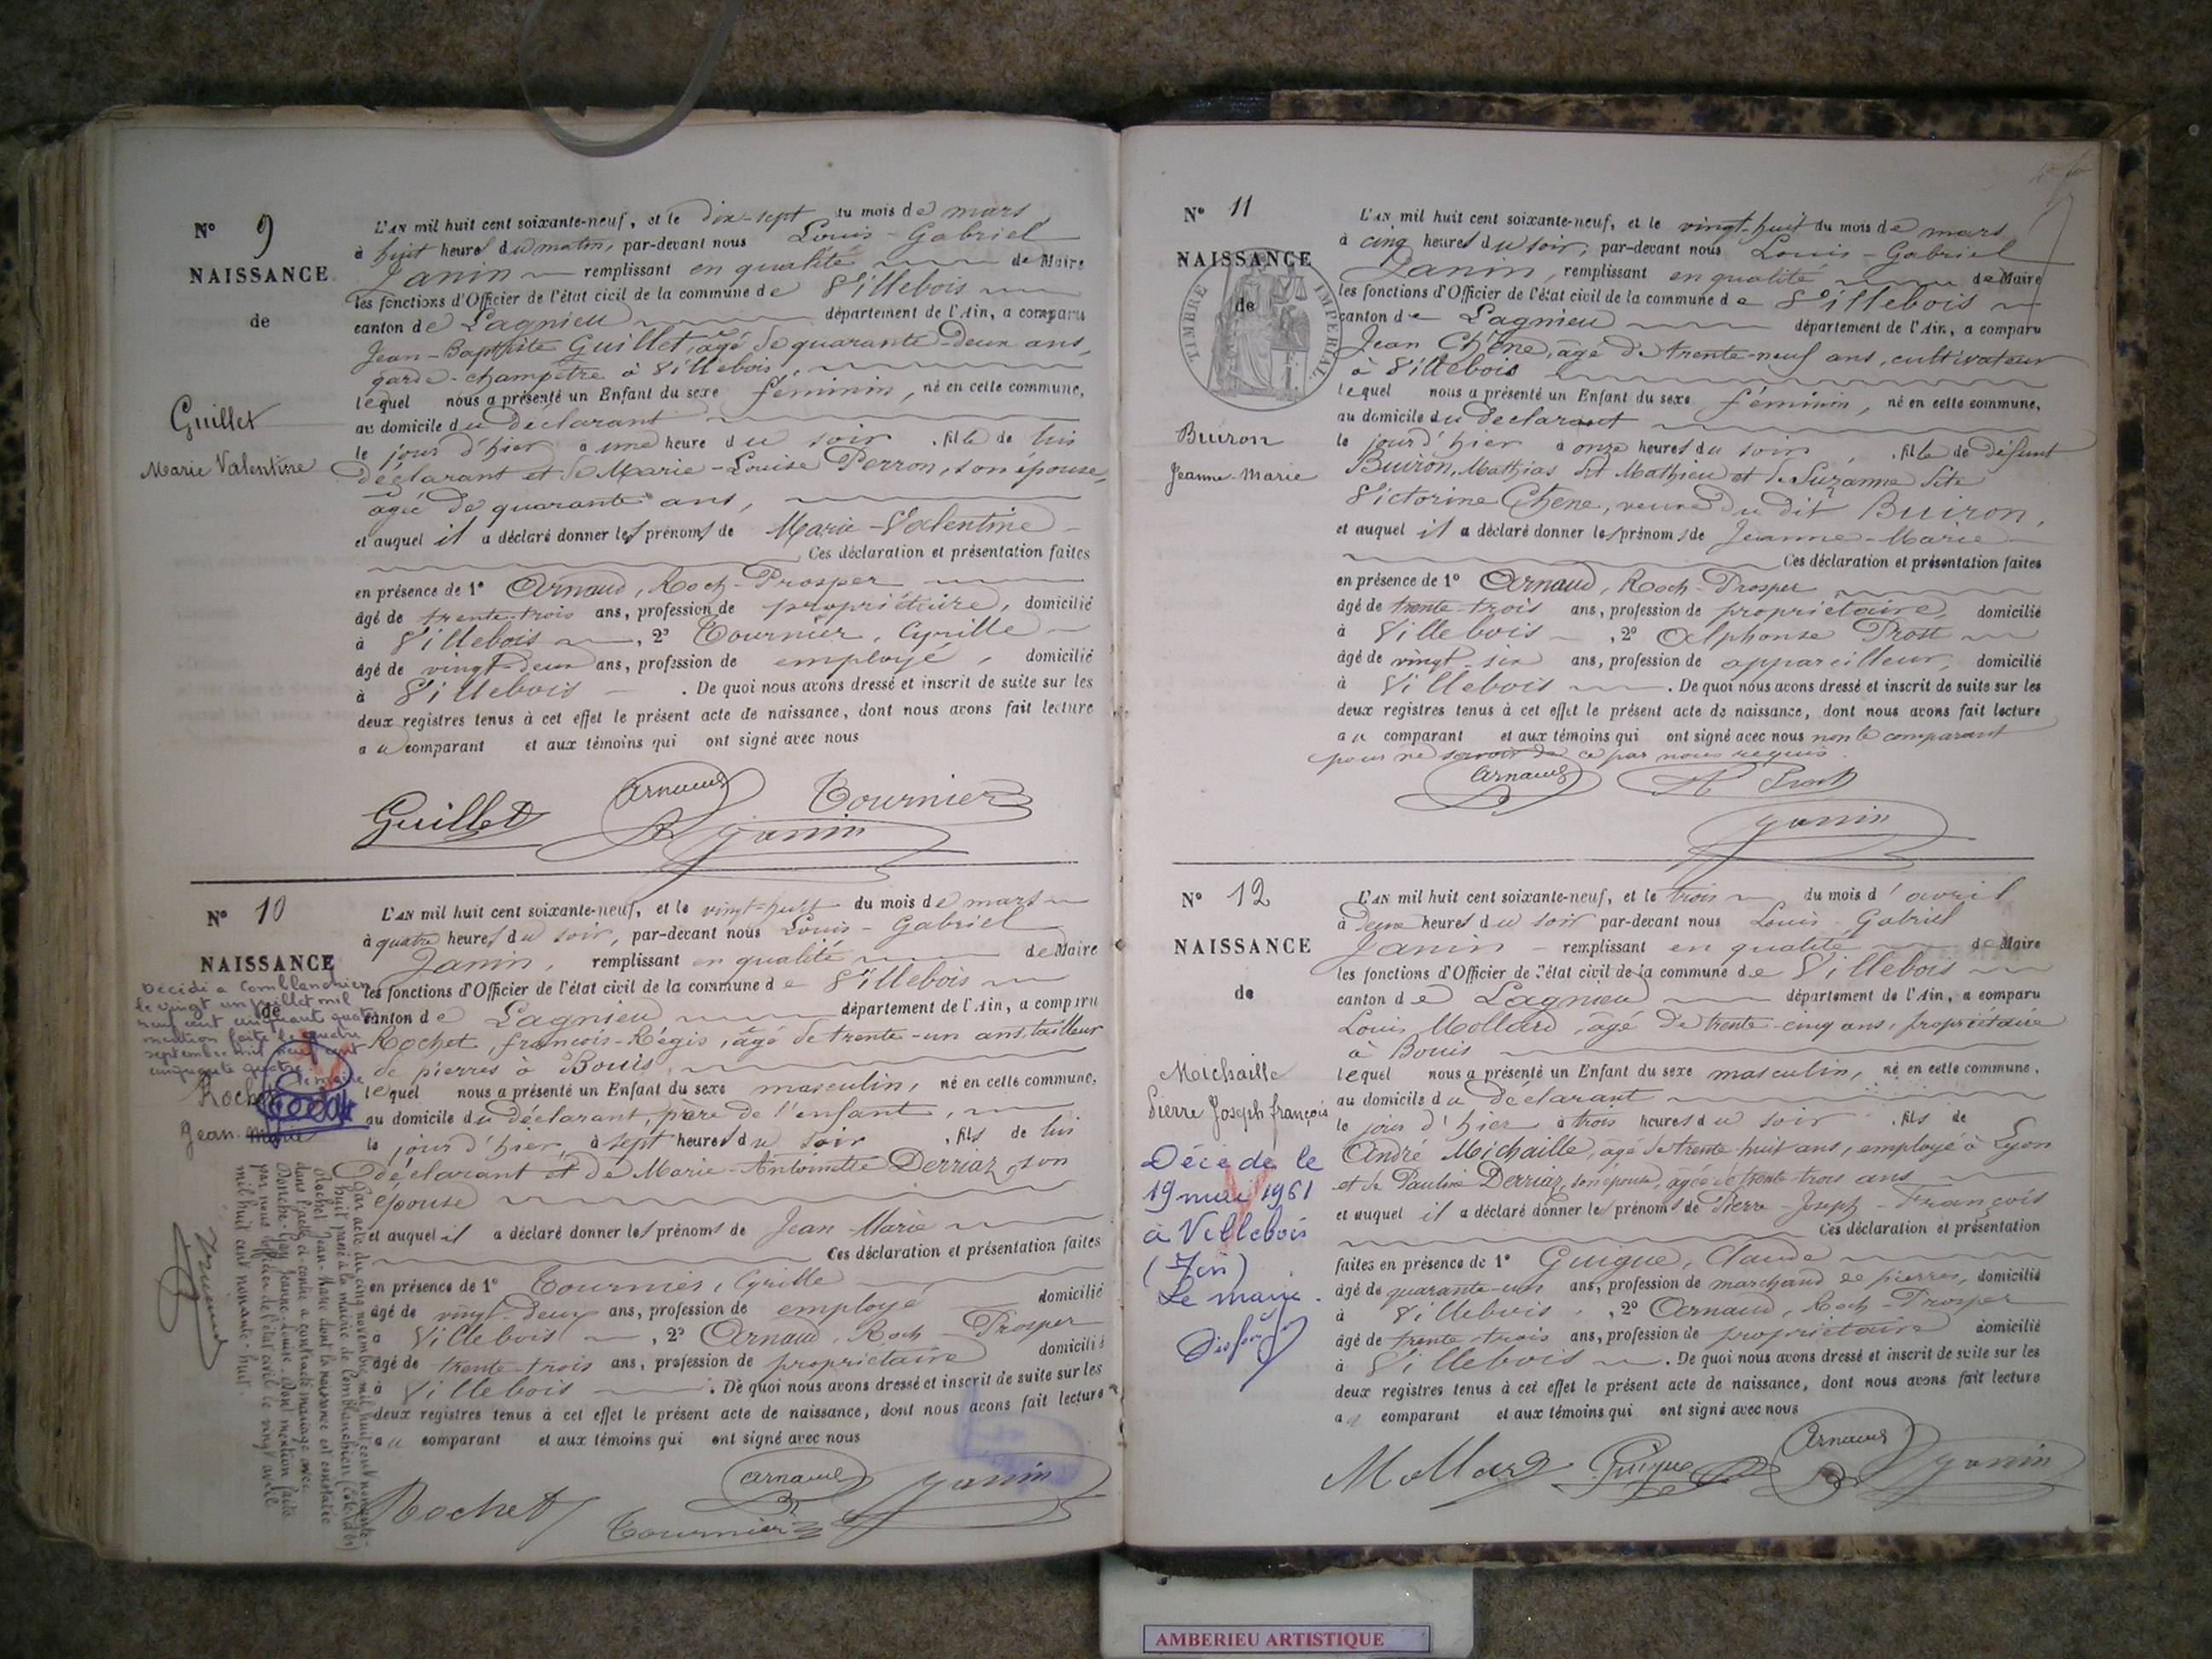 N° 9
NAISSANCE
de
Guillet
Marie Valentine
L'AN mil huit cent soixante-neuf, et le dix-sept du mois de mars
à huit heures du matin, par-devant nous Louis-Gabriel
Janin remplissant en qualité de Maire
les fonctions d'Officier de l'état civil de la commune de Villebois
canton de Lagnieu département de l'Ain, a comparu
Jean-Baptiste Guillet, âgé de quarante-deux ans,
garde-champêtre à Villebois,
lequel nous a présenté un Enfant du sexe féminin, né en cette commune,
au domicile du déclarant
le jour d'hier à une heure du soir, fille de lui
déclarant et de Marie-Louise Perron, son épouse,
agée de quarante ans,
et auquel il a déclaré donner les prénoms de Marie-Valentine
Ces déclaration et présentation faites
en présence de 1° Arnaud, Roch-Prosper
âgé de trente-trois ans, profession de propriétaire, domicilié
à Villebois, 2° Tournier, Cyrille
âgé de vingt-deux ans, profession de employé, domicilié
à Villebois. De quoi nous avons dressé et inscrit de suite sur les
deux registres tenus à cet effet le présent acte de naissance, dont nous avons fait lecture
au comparant et aux témoins qui ont signé avec nous
Guillet Arnaud Tournier
Janin
N° 10
NAISSANCE
de
Décédé a Comblanchien
le vingt un juillet mil
neuf cent cinquante quatre
mention faite le quatre
septembre mil neuf cent
cinquante quatre
Le maire
Rochet
Jean-Marie
L'AN mil huit cent soixante-neuf, et le vingt-huit du mois de mars
à quatre heures du soir, par-devant nous Louis-Gabriel
Janin, remplissant en qualité de Maire
les fonctions d'Officier de l'état civil de la commune de Villebois
canton de Lagnieu département de l'Ain, a comparu
Rochet, françois-Régis, âgé de trente-un ans, tailleur
de pierres à Bouis,
lequel nous a présenté un Enfant du sexe masculin, né en cette commune,
au domicile du déclarant, père de l'enfant,
le jour d'hier, à sept heures du soir, fils de lui
déclarant et de Marie-Antoinette Derriaz, son
épouse
et auquel il a déclaré donner les prénoms de Jean Marie
Ces déclaration et présentation faites
en présence de 1° Tournier, Cyrille
âgé de vingt-deux ans, profession de employé domicilié
à Villebois, 2° Arnaud, Roch-Prosper
âgé de trente-trois ans, profession de propriétaire domicilié
à Villebois. De quoi nous avons dressé et inscrit de suite sur les
deux registres tenus à cet effet le présent acte de naissance, dont nous avons fait lecture
au comparant et aux témoins qui ont signé avec nous
Rochet Tournier Arnaud Janin
Par acte du cinq novembre mil huit cent nonante-
huit passé à la mairie de Comblanchien (Côte d'Or)
Rochet Jean-Marie dont la naissance est constatée
dans l'acte ci-contre a contracté mariage avec
Jeanne-Louise. Dont mention faite
par nous officier de l'état civil le vingt avril
mil huit cent nonante-huit
N° 11
NAISSANCE
de
TIMBRE IMPERIAL
Buiron
Jeanne-Marie
L'AN mil huit cent soixante-neuf, et le vingt-huit du mois de mars
à cinq heures du soir, par-devant nous Louis-Gabriel
Janin, remplissant en qualité de Maire
les fonctions d'Officier de l'état civil de la commune de Villebois
canton de Lagnieu département de l'Ain, a comparu
Jean Chêne, âgé de trente-neuf ans, cultivateur
à Villebois
lequel nous a présenté un Enfant du sexe féminin, né en cette commune,
au domicile du déclarant
le jour d'hier à onze heures du soir, fille de défunt
Buiron, Mathias dit Mathieu et de Suzanne dite
Victorine Chêne, veuve du dit Buiron,
et auquel il a déclaré donner les prénoms de Jeanne-Marie
Ces déclaration et présentation faites
en présence de 1° Arnaud, Roch-Prosper
âgé de trente-trois ans, profession de propriétaire, domicilié
à Villebois, 2° Alphonse Prost
âgé de vingt-six ans, profession de appareilleur, domicilié
à Villebois. De quoi nous avons dressé et inscrit de suite sur les
deux registres tenus à cet effet le présent acte de naissance, dont nous avons fait lecture
au comparant et aux témoins qui ont signé avec nous non le comparant
pour ne savoir de ce par nous requis
Arnaud A Prost
Janin
N° 12
NAISSANCE
de
Michaille
Pierre Joseph françois
Décédé le
19 mai 1961
à Villebois
(Ain)
Le maire.
L'AN mil huit cent soixante-neuf, et le trois du mois d'avril
à deux heures du soir par-devant nous Louis-Gabriel
Janin remplissant en qualité de Maire
les fonctions d'Officier de l'état civil de la commune de Villebois
canton de Lagnieu département de l'Ain, a comparu
Louis Mollard, âgé de trente-cinq ans, propriétaire
à Bouis
lequel nous a présenté un Enfant du sexe masculin, né en cette commune,
au domicile du déclarant
le jour d'hier à trois heures du soir, fils de
André Michaille, âgé de trente huit ans, employé à Lyon
et de Pauline Derriaz, son épouse, agée de trente-trois ans
et auquel il a déclaré donner les prénoms de Pierre-Joseph-François
Ces déclaration et présentation
faites en présence de 1° Guigue, Claude
âgé de quarante-un ans, profession de marchand de pierres, domicilié
à Villebois, 2° Arnaud, Roch-Prosper
âgé de trente-trois ans, profession de propriétaire domicilié
à Villebois. De quoi nous avons dressé et inscrit de suite sur les
deux registres tenus à cet effet le présent acte de naissance, dont nous avons fait lecture
au comparant et aux témoins qui ont signé avec nous
Mollard Guigue Arnaud Janin
AMBERIEU ARTISTIQUE